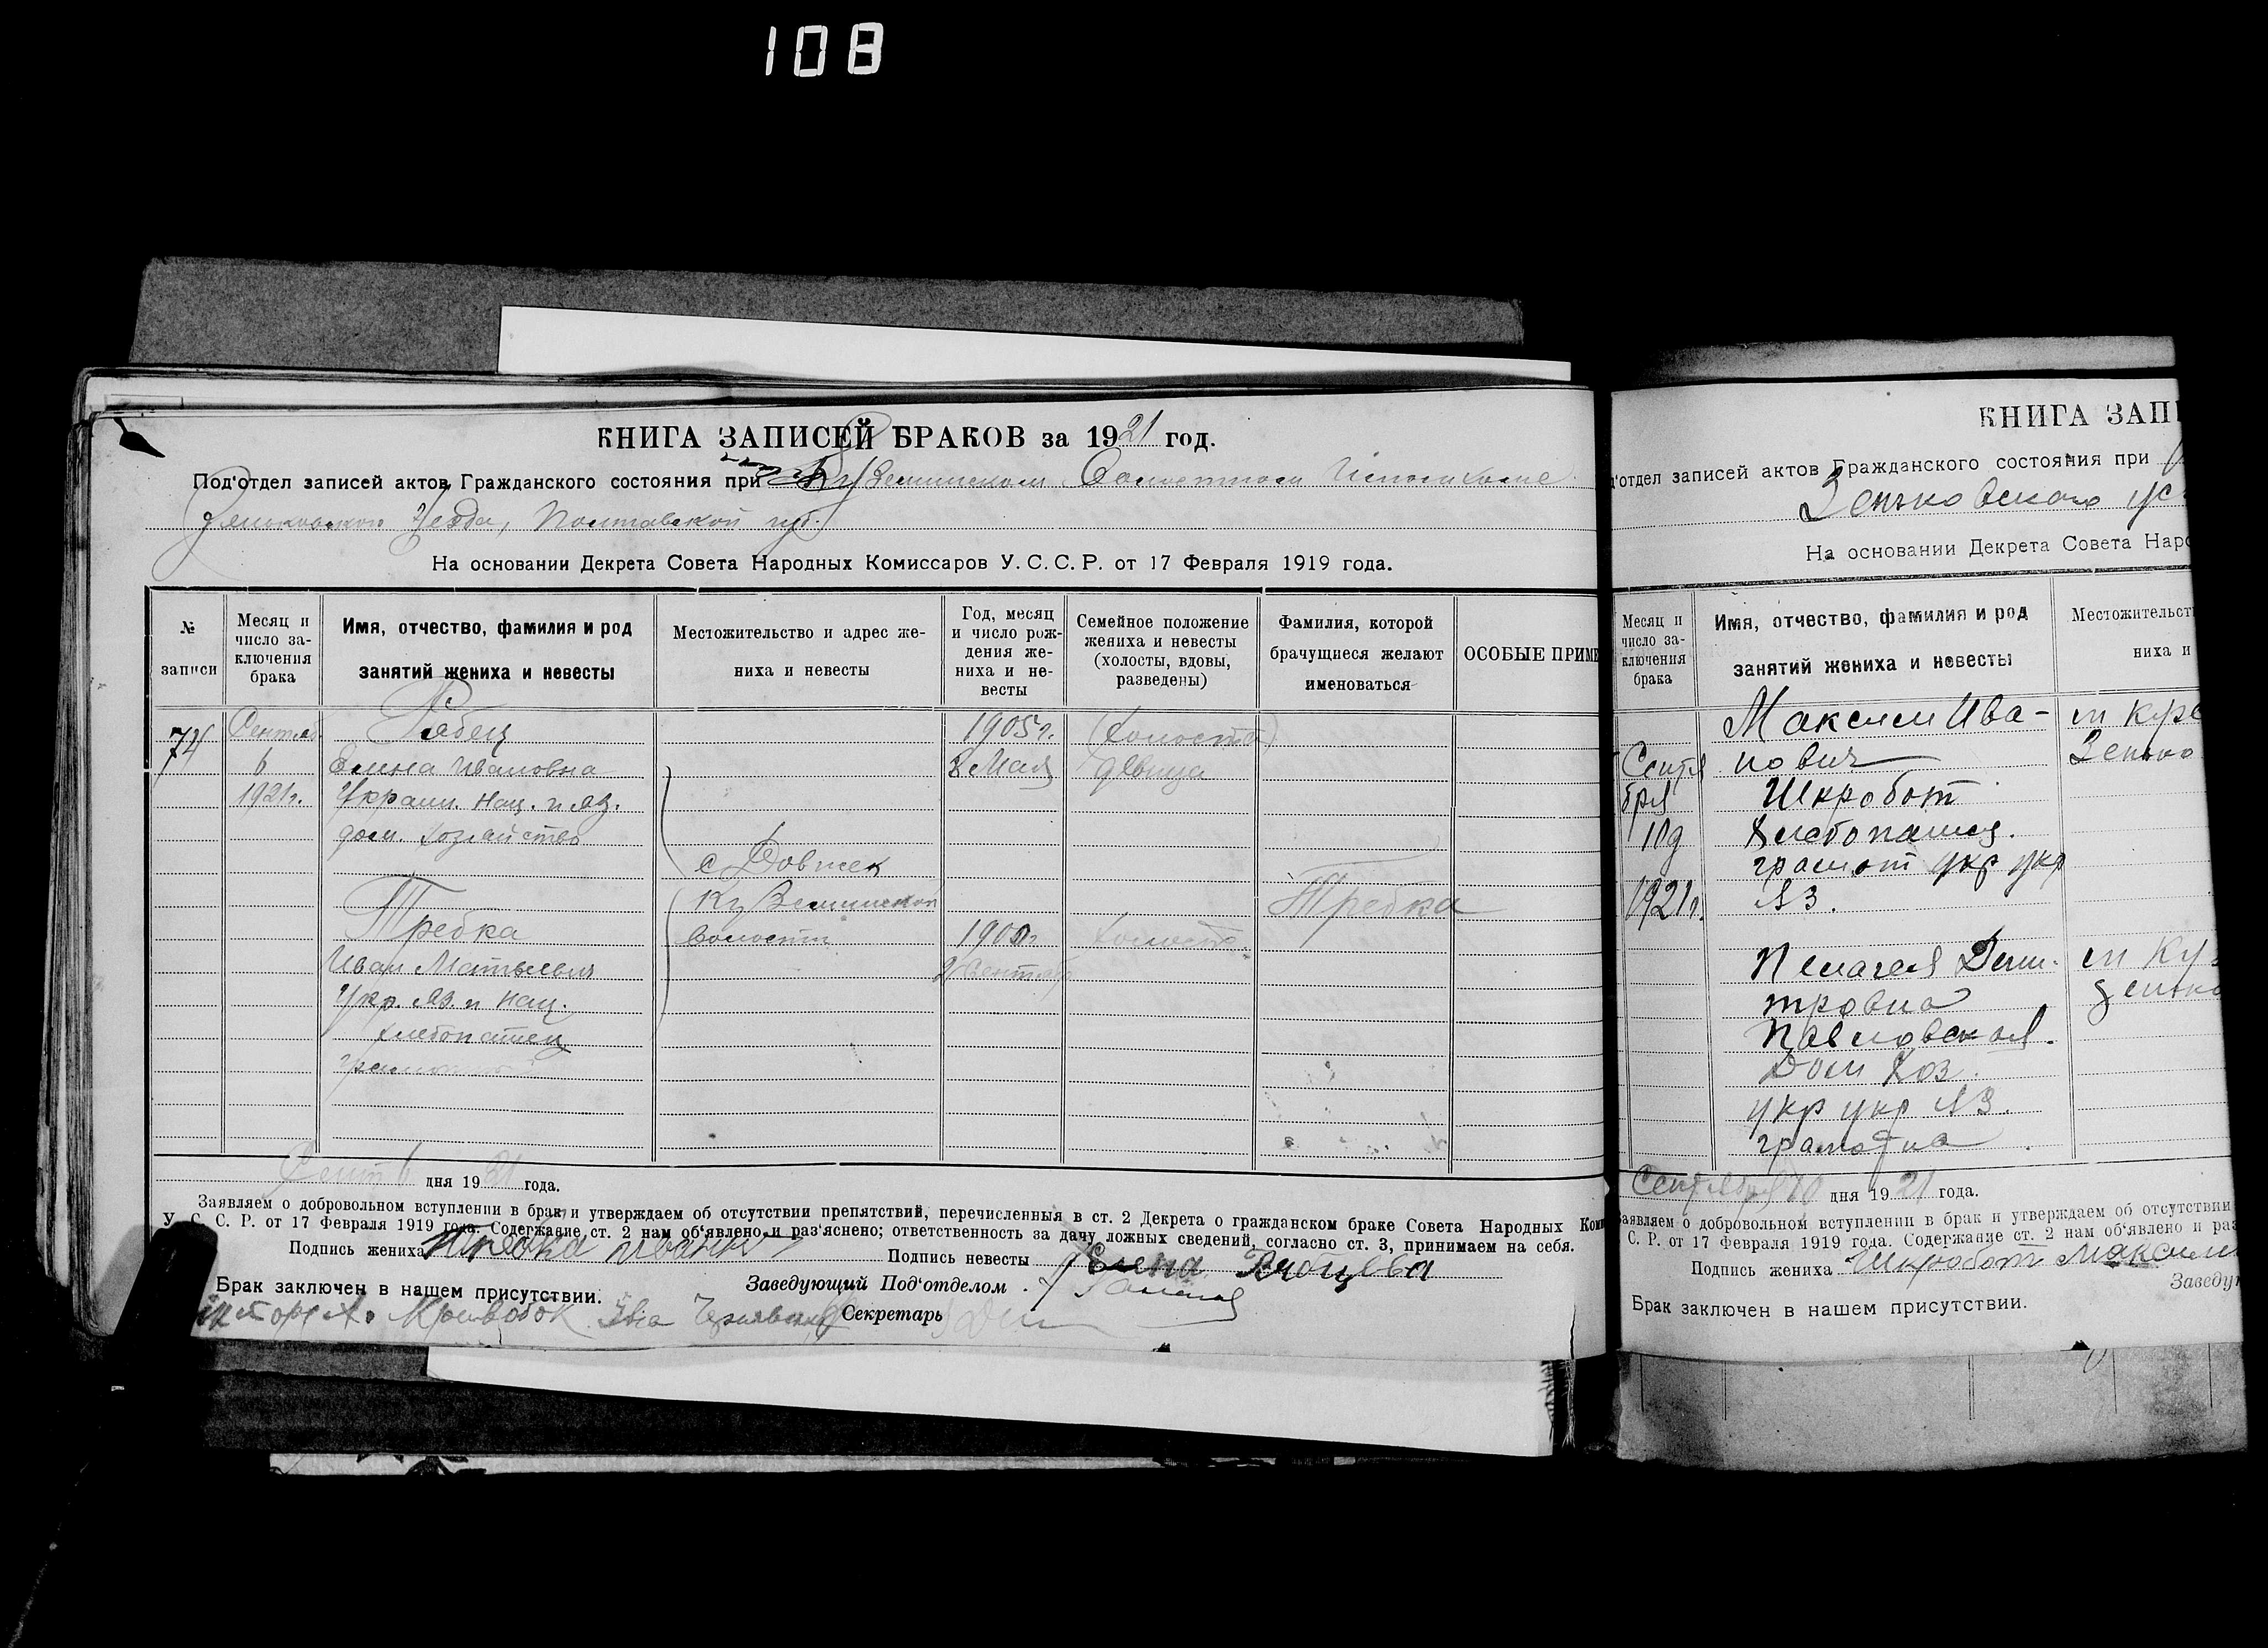 108
КНИГА ЗАПИСЕЙ БРАКОВ за 1921 год.
Под'отдел записей актов Гражданского состояния при Куземинском Волостном Исполкоме
Зеньковского Уезда, Полтавской губ.
На основании Декрета Совета Народных Комиссаров У. С. С. Р. от 17 Февраля 1919 года.
№ записи
Месяц и число заключения брака
Имя, отчество, фамилия и род занятий жениха и невесты
Местожительство и адрес жениха и невесты
Год, месяц и число рождения жениха и невесты
Семейное положение жениха и невесты (холосты, вдовы, разведены)
Фамилия, которой брачущиеся желают именоваться
ОСОБЫЕ ПРИМЕ
74 Сентяб Рябец 1905г. (холоста)
6 Елина Ивановна 8 Мая девица
1921г. Украин. нац. и яз.
дом. хозяйство
с Довжек
Куземинской Требка
Требка волости 1900г холост
Иван Матвеевич 2 Сентяб
Укр. яз. и нац.
хлебопашец
грамотный
Сент 6 дня 1921 года.
Заявляем о добровольном вступлении в брак и утверждаем об отсутствии препятствий, перечисленныя в ст. 2 Декрета о гражданском браке Совета Народных Ком
У. С. С. Р. от 17 Февраля 1919 года. Содержание ст. 2 нам об'явлено и раз'яснено; ответственность за дачу ложных сведений, согласно ст. 3, принимаем на себя.
Подпись жениха Требка Иван
Подпись невесты Елена Рябцева
Брак заключен в нашем присутствии.
Заведующий Под'отделом
Кривобок
Секретарь
КНИГА ЗАП
'отдел записей актов Гражданского состояния при
Зеньковского у
На основании Декрета Совета Наро
Месяц и число заключения брака
Имя, отчество, фамилия и род занятий жениха и невесты
Местожительст
ниха и
Максим Ива- м Куз
Сентя нович Зенько
бря Шкробот
10д хлебопашец.
грамот укр укр
1921г. яз.
Пелагея Дми- м Куз
тровна Зенько
Павловская.
Дом хоз.
укр укр яз.
грамотна
Сентября 10 дня 1921 года.
Заявляем о добровольном вступлении в брак и утверждаем об отсутствии
С. Р. от 17 Февраля 1919 года. Содержание ст. 2 нам об'явлено и раз
Подпись жениха Шкробот Максим
Заведу
Брак заключен в нашем присутствии.